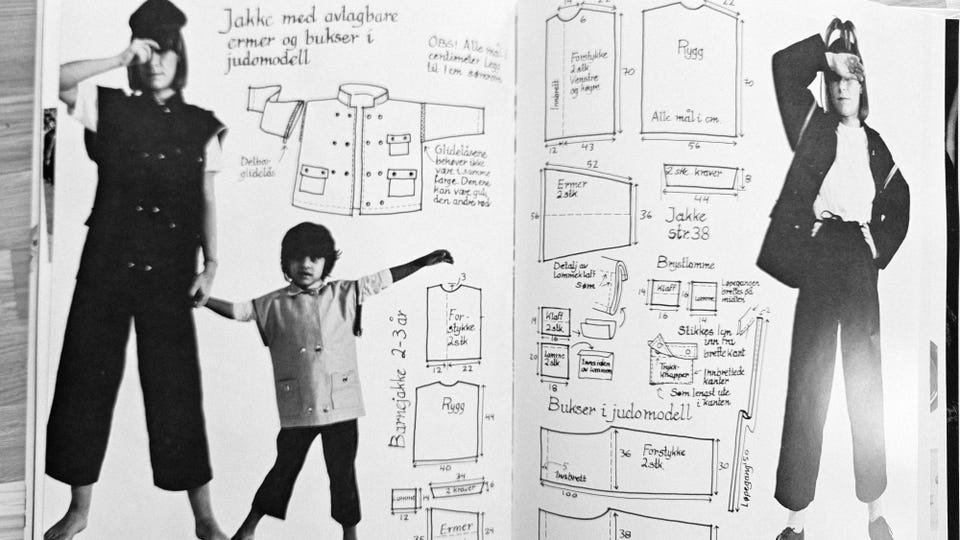 Jakke med avtagbare
ermer og bukser i
judomodell
OBS! Alle mål i
centimeter Legg
til 1 cm sømrom
Delbar
glidelås
Glidelåsene
behøver ikke
være i samme
farge. Den ene
kan være gul,
den andre rød
Barnejakke 2-3 år
3
For-
stykke
2 stk
12
22
Rygg
44
40
34
2 kraver
6
Lomme
14
12
Ermer
24
14
22
6
Forstykke
2 stk.
Venstre
og høyre
Innbrett
70
12
43
22
Rygg
Alle mål i cm.
70
56
52
Ermer
2 stk
56
36
2 stk kraver
8
44
Jakke
str. 38
Detalj av
lommeklaff
Søm
Brystlomme
14
Klaff
16
16
Lomme
14
Løpegangen
brettes på
midten
14
Klaff
2 stk.
16
20
Lomme
2 stk
18
Innsiden
av lommen
Stikkes 1 cm
inn fra
brettekant
Trykk-
knapper
Innbrettede
kanter
Søm lengst ute
i kanten
Bukser i judomodell
5
Innbrett
36
Forstykke
2 stk.
30
100
Løpegang
38